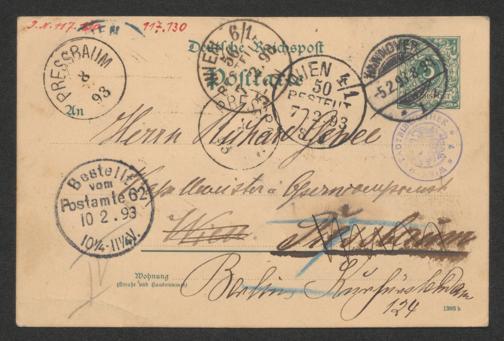 I.N. 117.130 117.130
Deutsche Reichspost
Postkarte
PRESSBAUM
8
93
WIEN 6/1
WIEN 4/1
50
BESTELLT
7 2 93
HANNOVER
5.2.93
An
Herrn Richard Genée
Kapellmeister & Operncomponist
Wien
Pressbaum
Bestellt
vom
Postamte 62
10 2 .93
10¼-11½V
Wohnung
(Straße und Hausnummer)
Berlin, Kurfürstendamm
124